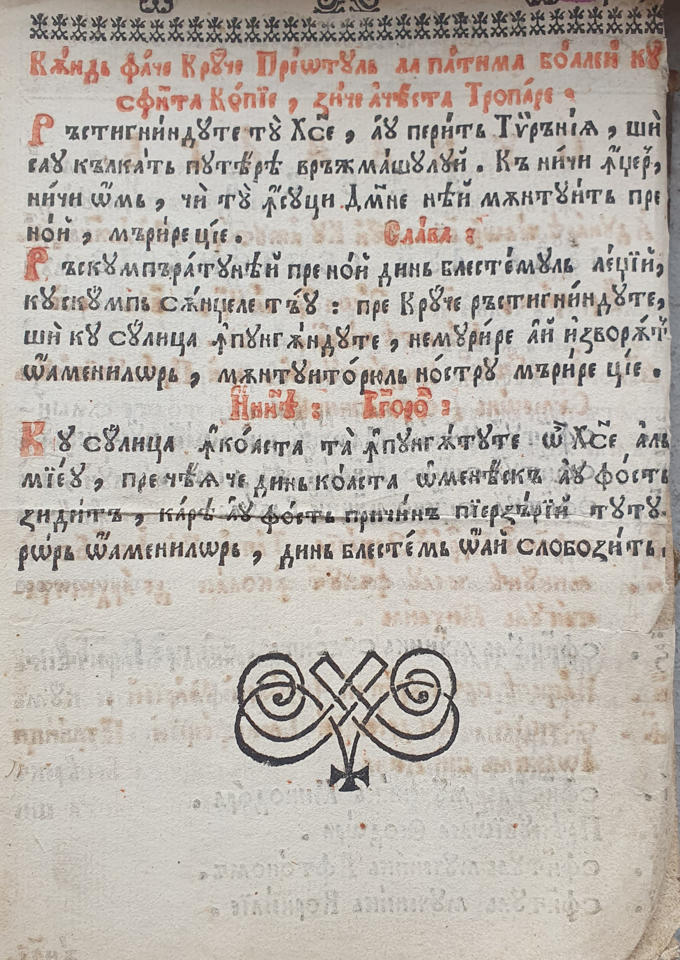 Кѫндь фаче Крꙋче Преѡтꙋль ла патима боалеи кꙋ
сфи́нта Ко́пїе, зи́че аче́ста Тропа́ре.
Ръстигни́ндꙋте тꙋ̀ Хс҃е, аꙋ перить Тѵ́рънїѧ, шѝ
саꙋ кълка́ть пꙋтѣ́рѣ връжмашꙋлꙋй. Къ ни́чи ꙟ҆́џер,
ни́чи ѿмь, чѝ тꙋ̀ ꙟ҆́сꙋци Дм҃не нѣй мѫнтꙋи́ть пре
но́й, мъри́ре цїе. Сла́ва:
Ръскꙋмпъра́тꙋнѣй пре но́й динь блесте́мꙋль ле́џїй,
кꙋ скꙋ́мпь сѫ́нџеле тъ́ꙋ: пре Крꙋ́че ръстигни́ндꙋте,
шѝ кꙋ сꙋ́лица ꙟ҆пꙋнгѫ́ндꙋте, немꙋри́ре а́й и҆зворѫ́т
ѿаменилѡрь, мѫнтꙋито́рюль но́стрꙋ мъри́ре цїе.
Ни́нѣ: Бг҃оро:
Кꙋ сꙋ́лица ꙟ҆ ко́аста та̀ ꙟ҆пꙋнгѫ́тꙋте ѿ Хс҃е аль
мїе́ꙋ, пре чѣ́ѧ че динь ко́аста ѡ҆мене́скъ аꙋ фо́сть
зиди́тъ, ка́рѣ аꙋ фо́сть причи́нъ пїерзърїй тꙋтꙋ-
рѡ́рь ѿаменилѡрь, динь блесте́мь ѿай слобози́ть.